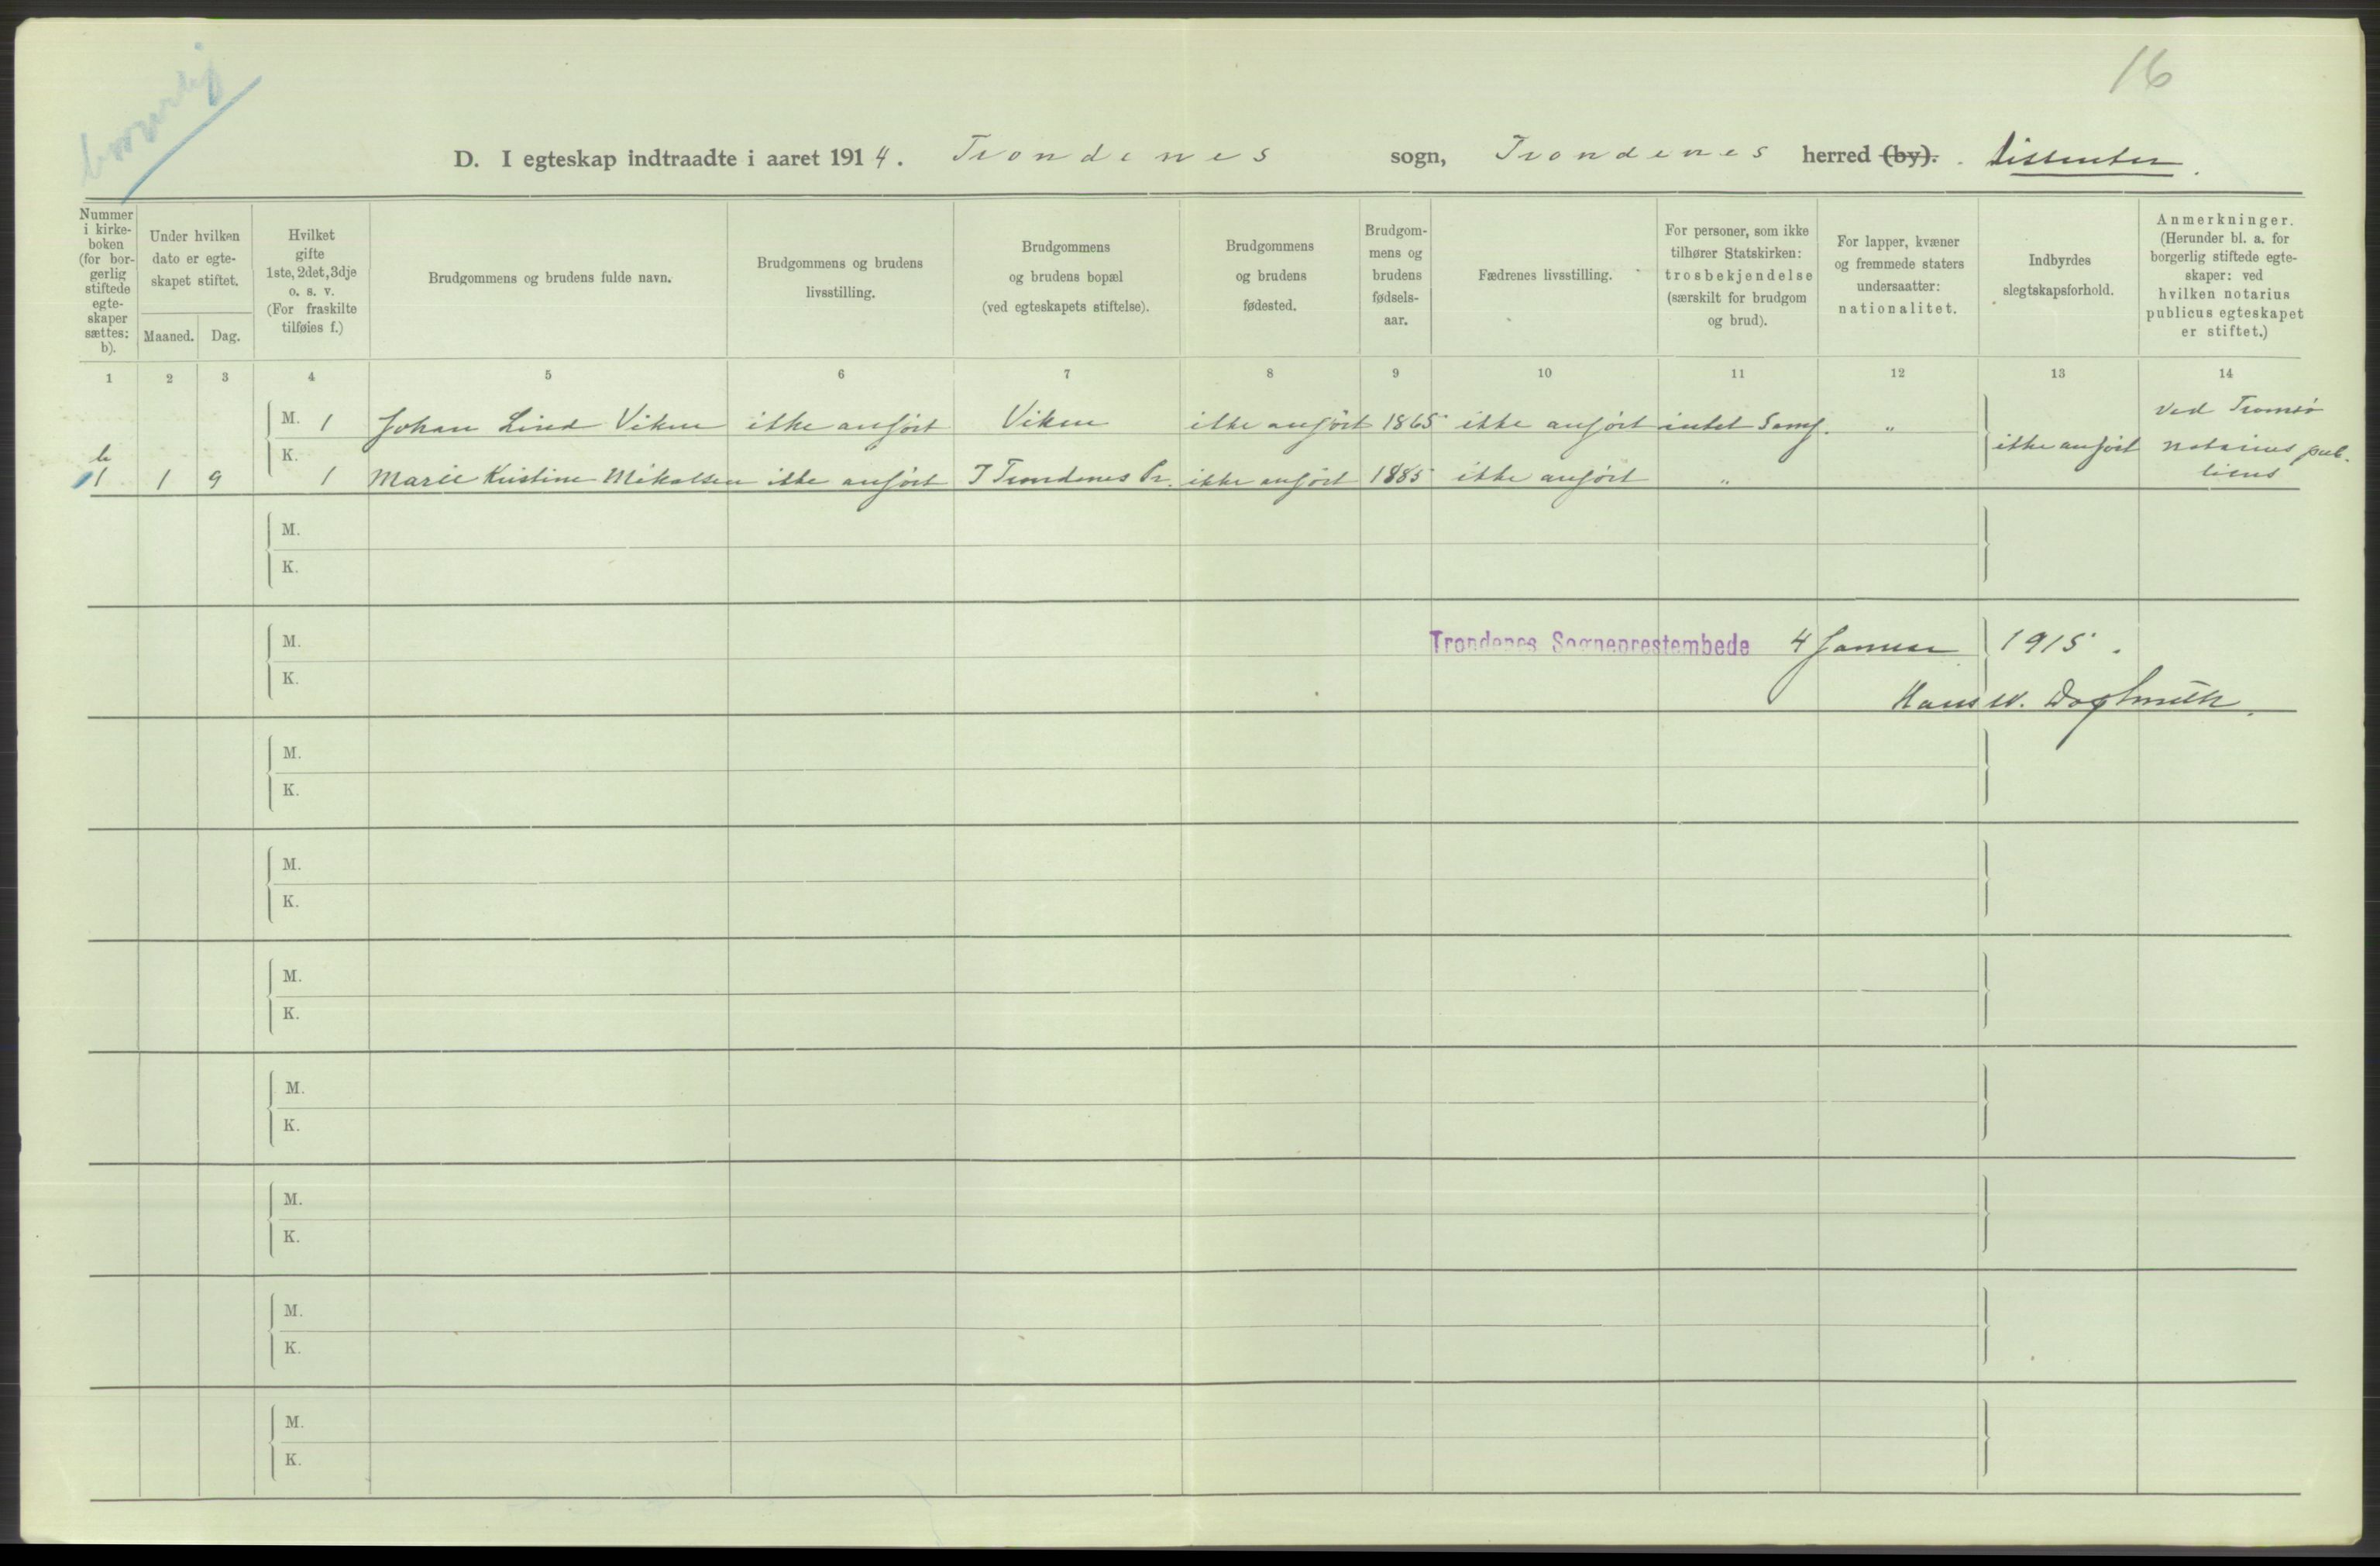 borgerlig
16
D. I egteskap indtraadte i aaret 1914. Trondenes sogn, Trondenes herred (by). . Dissenter.
Nummer i kirke- boken (for bor- gerlig stiftede egte- skaper sættes: b).
Under hvilken dato er egte- skapet stiftet.
Maaned. Dag.
Hvilket gifte 1ste, 2det, 3dje o. s. v. (For fraskilte tilføies f.)
Brudgommens og brudens fulde navn.
Brudgommens og brudens livsstilling.
Brudgommens og brudens bopæl (ved egteskapets stiftelse).
Brudgommens og brudens fødested.
Brudgom- mens og brudens fødsels- aar.
Fædrenes livsstilling.
For personer, som ikke tilhører Statskirken: trosbekjendelse (særskilt for brudgom og brud).
For lapper, kvæner og fremmede staters undersaatter: nationalitet.
Indbyrdes slegtskapsforhold.
Anmerkninger. (Herunder bl. a. for borgerlig stiftede egte- skaper: ved hvilken notarius publicus egteskapet er stiftet.)
1 2 3 4 5 6 7 8 9 10 11 12 13 14
M. 1 Johan Lind Viken ikke anført Viken ikke anført 1865 ikke anført intet Samf. " ved Tromsø
b K. ikke anført notarius pub-
1 1 9 1 Marie Kristine Mikalsen ikke anført I Trondenes Pr. ikke anført 1885 ikke anført " licus
M.
K.
M. Trondenes Sogneprestembede 4 Januar 1915.
K. Hans
M.
K.
M.
K.
M.
K.
M.
K.
M.
K.
M.
K.
M.
K.